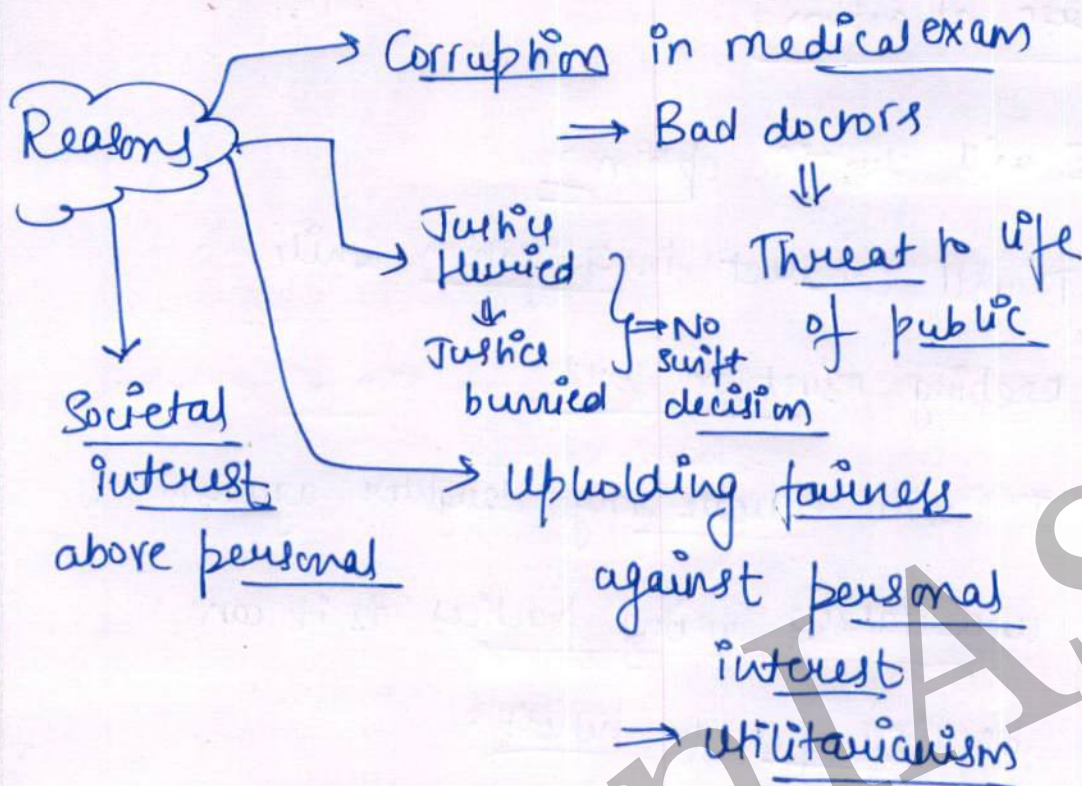 Reasons
→ Corruption in medical exam
⇒ Bad doctors
⇓
Threat to life
of public
→ Justice
Hurried
⇓
Justice
burried
} ⇒ No
swift
decision
Societal
interest
above personal
→ Upholding fairness
against personal
interest
⇒ Utilitarianism
IAS